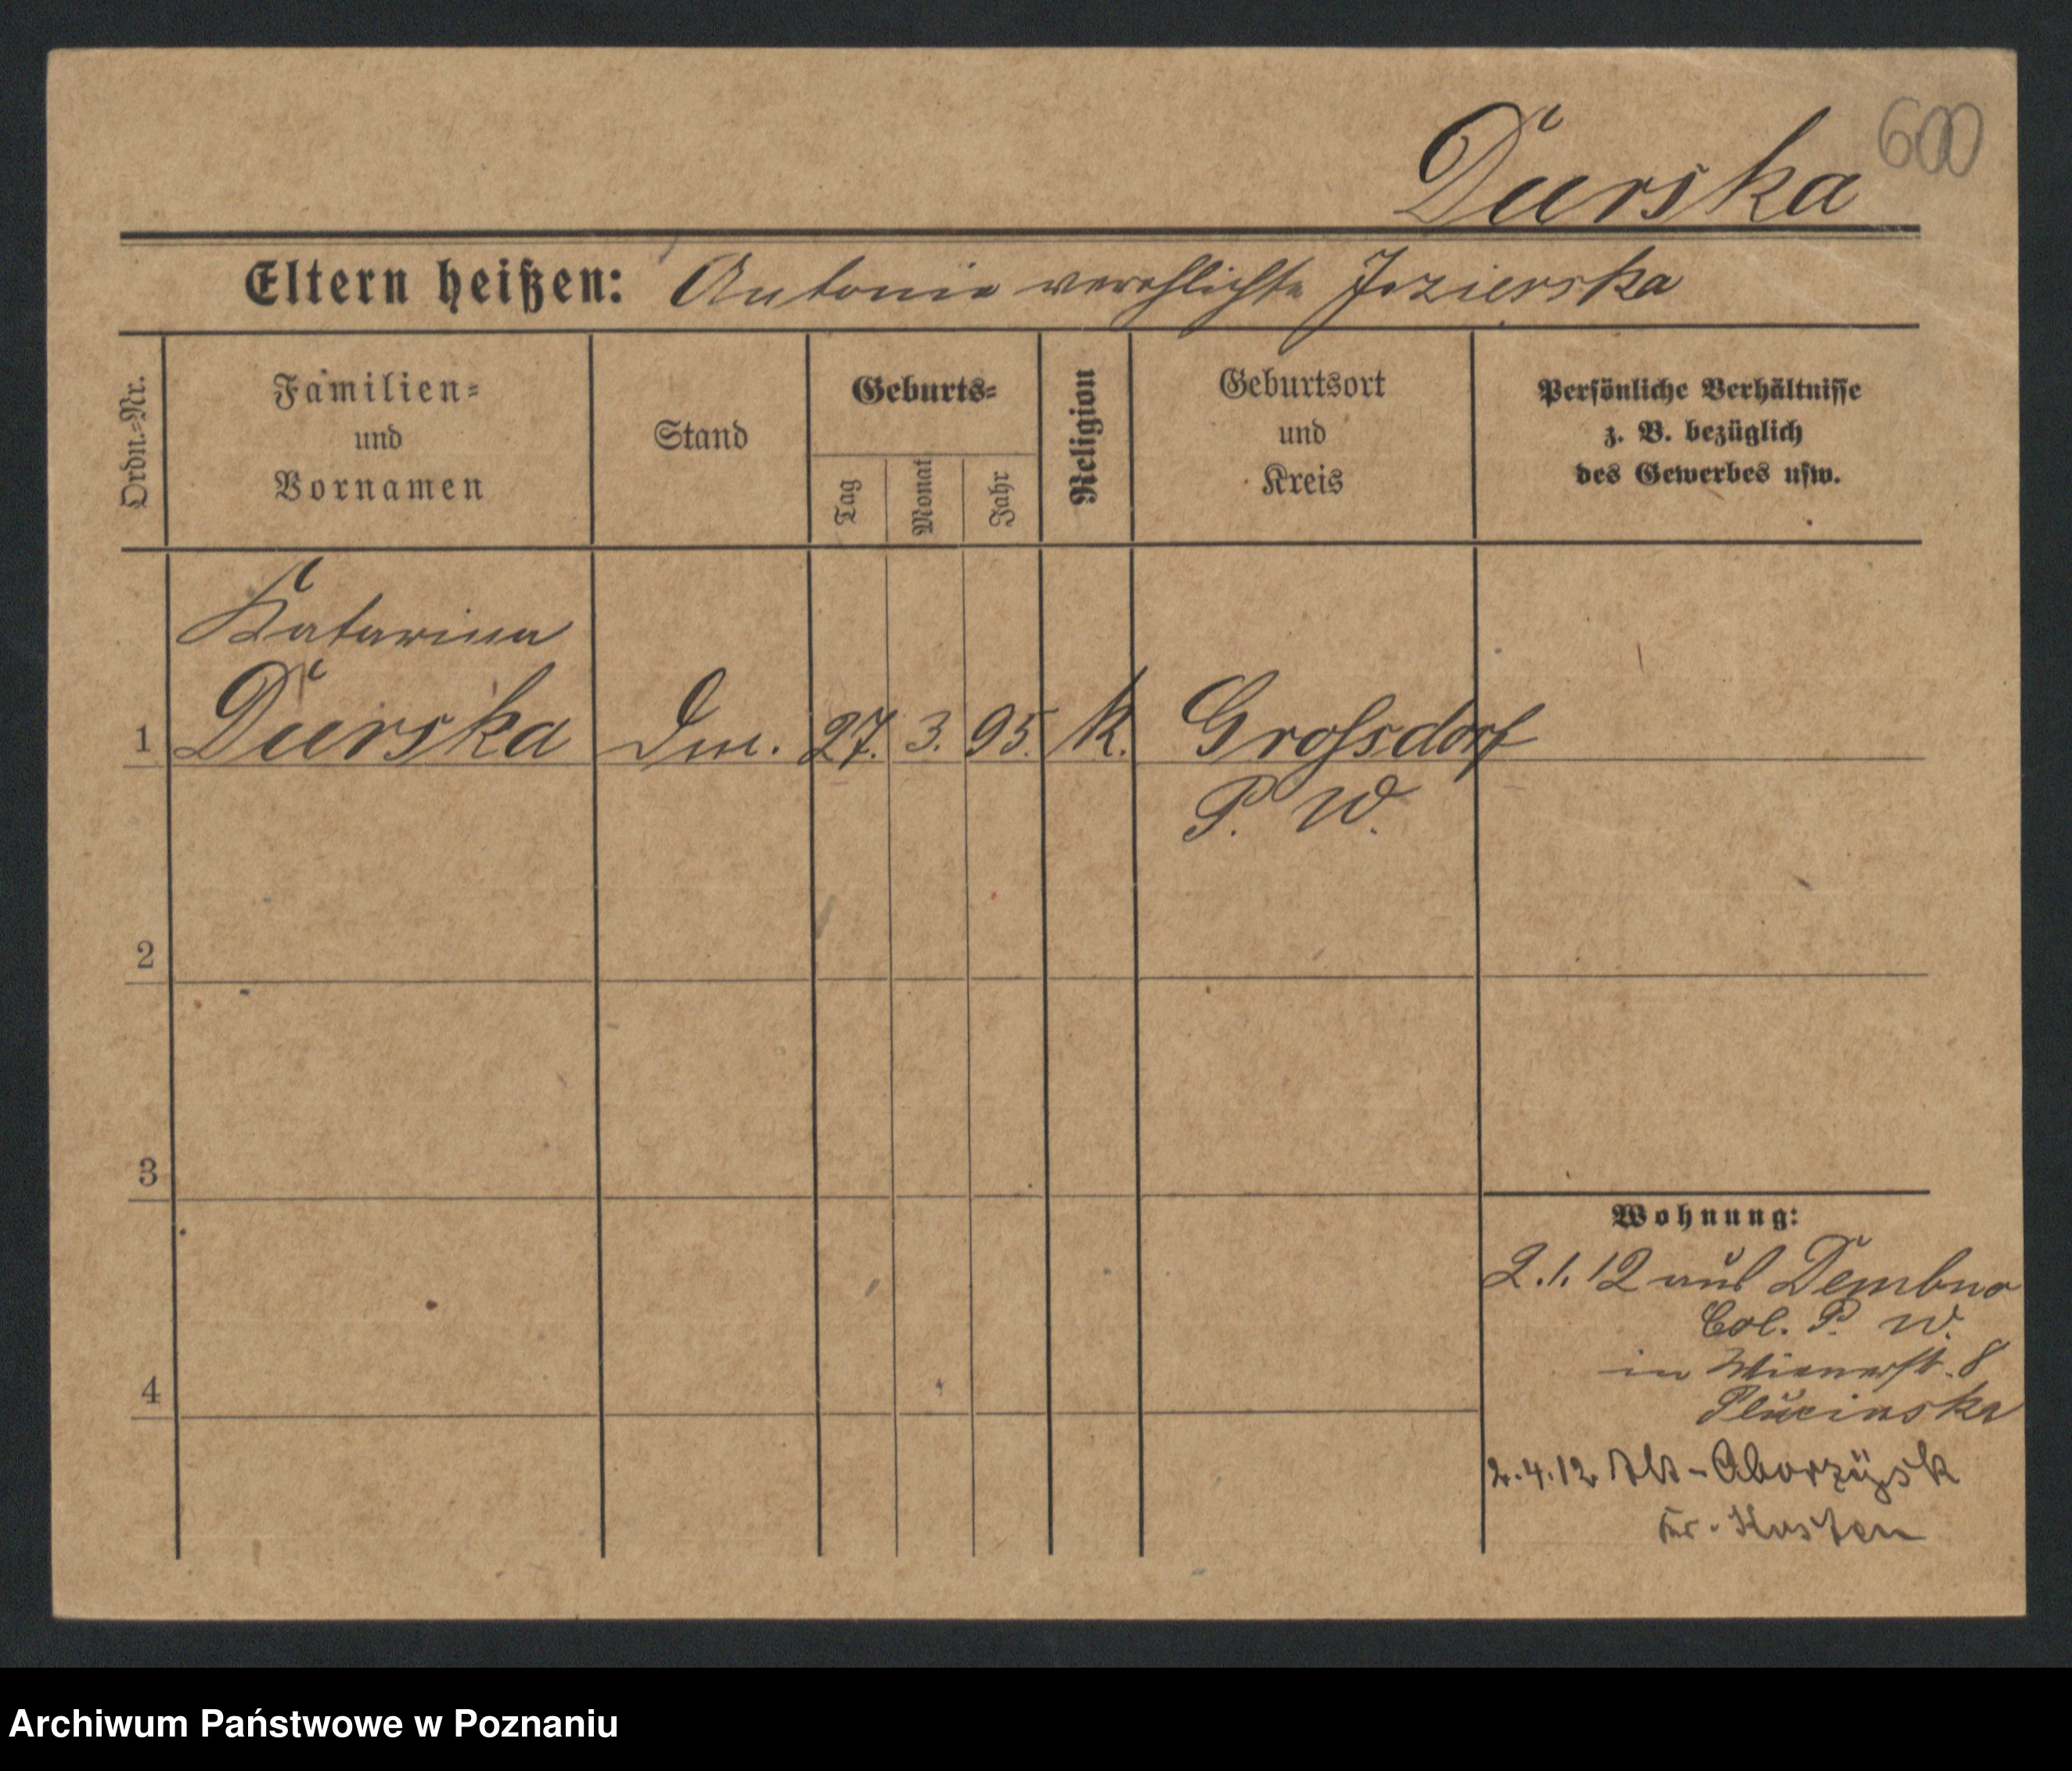 600
Durska
Eltern heißen: Antonie verehlichte Jezierska
Ordn.=Nr.
Familien=
und
Vornamen
Stand
Geburts=
Tag
Monat
Jahr
Religion
Geburtsort
und
Kreis
Persönliche Verhältnisse
z. B. bezüglich
des Gewerbes usw.
Katarina
1 Durska 27. 3. 95. K. Grossdorf
P. W.
2
3
Wohnung:
2.1.12 aus Dembno
Col. P. W.
in Wienerst. 8
4
Plucinska
2.4.12 Alt-Oborzysk
Kr. Kosten
Archiwum Państwowe w Poznaniu